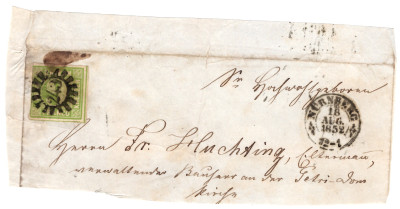 Sr. Hochwohlgeboren
NÜRNBERG
18
AUG.
1852
12-1
Herrn Fr. Huchting, Eltermann,
verwaltender Bauherr an der Petri-Dom
Kirche